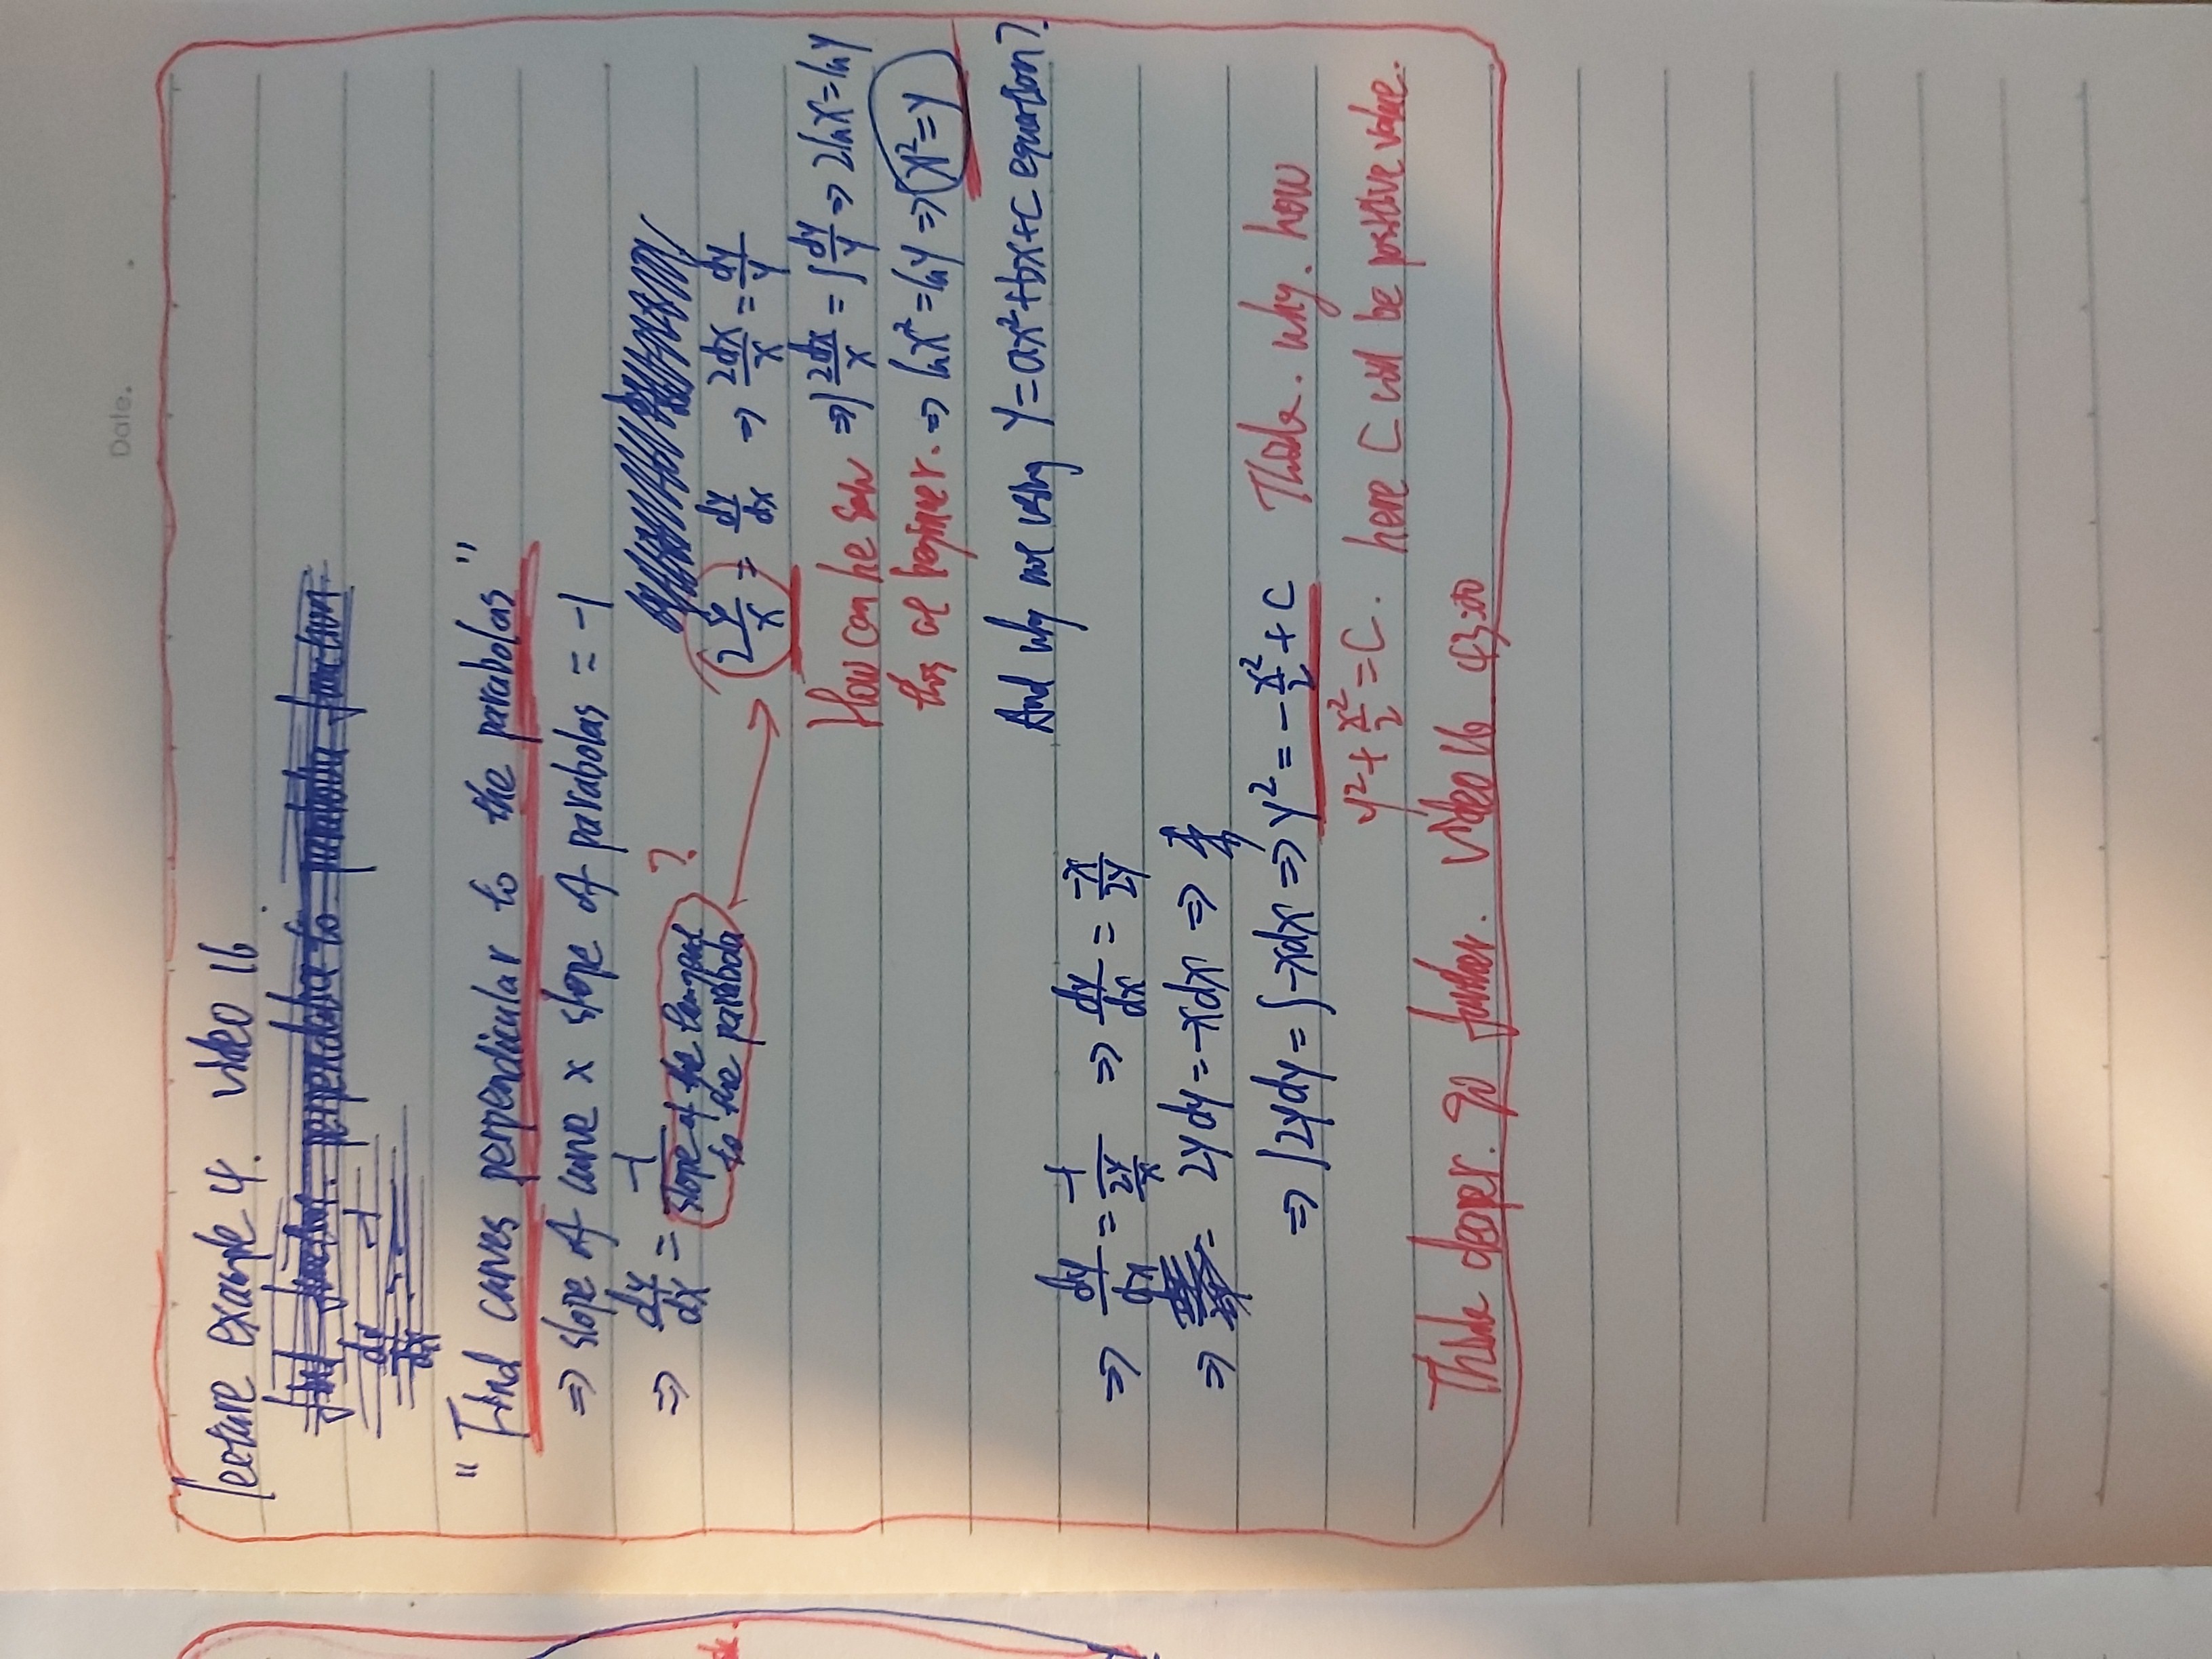 Date.
lecture example 4. video 16.
"Find curves perpendicular to the parabolas"
⇒ slope of curve x slope of parabolas = -1
⇒ dy/dx = -1/slope of the tangent to the parabola ?
2y/x = dy/dx ⇒ 2dx/x = dy/y
How can he saw ⇒ ∫2dx/x = ∫dy/y ⇒ 2lnx = lny
this at beginner. ⇒ lnx² = lny ⇒ x² = y
And why not using y = ax²+bx+c equation?
⇒ dy/dx = -1/(2y/x) ⇒ dy/dx = -x/2y
⇒ 2ydy = -xdx ⇒
⇒ ∫2ydy = ∫-xdx ⇒ y² = -x²/2 + C Think. why. how
y² + x²/2 = C. here C will be positive value.
Think deeper. go further. video 16 43:00